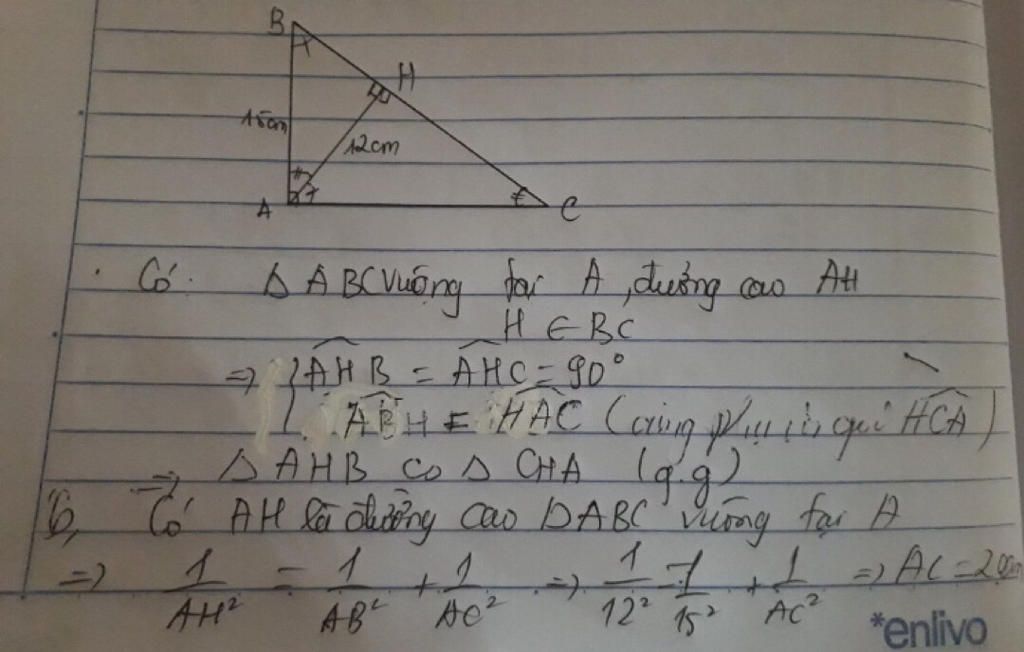 B
H
15cm
12cm
A
C
Có: Δ ABC vuông tại A, đường cao AH
H ∈ BC
=> { AHB = AHC = 90°
ABH = HAC (cùng phụ với góc HCA)
=> Δ AHB ∽ Δ CHA (g.g)
b, Có AH là đường cao ΔABC vuông tại A
=> 1/AH² = 1/AB² + 1/AC² => 1/12² = 1/15² + 1/AC² => AC = 20cm
*enlivo